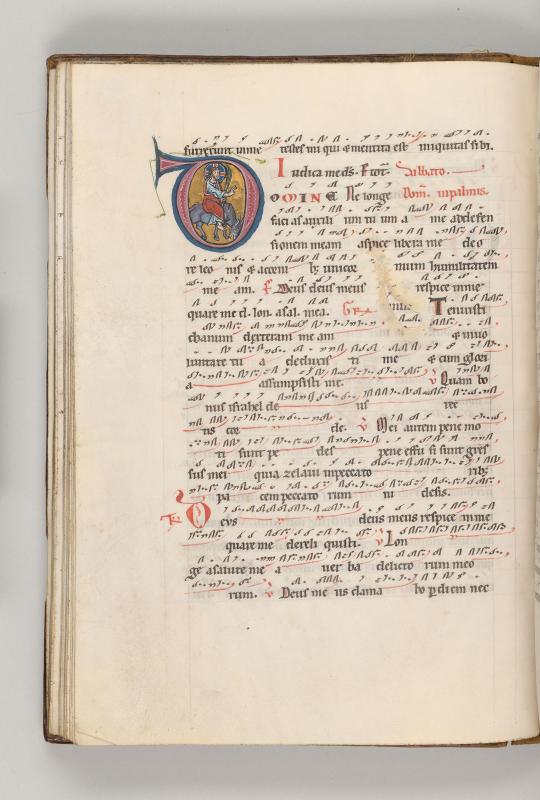 surrexerunt in me testes in qui & mentita est iniquitas sibi.
Iudica me ds. F tot. Sabbato.
DOMINE Ne longe Dom. in palmis.
facias auxili um tu um a me ad defen
sionem meam aspice libera me de o
re leo nis & a corn bus unicor nium humilitatem
me am. Deus deus meus respice in me
quare me d. lon. a sal. mea. GRA Tenuisti
manum dexteram me am & in uo
luntate tu a deduxis ti me & cum glori
a assumpsisti me. v Quam bo
nus israhel de us rec
tis cor de. v Mei autem pene mo
ti sunt pe des pene effu si sunt gres
sus mei quia zelaui in peccato ribus
pa cem pecca to rum ui dens.
TR Deus deus meus respice in me
quare me dereli quisti. v Lon
ge a salute me a uer ba delicto rum meo
rum. v Deus me us clama bo p diem nec